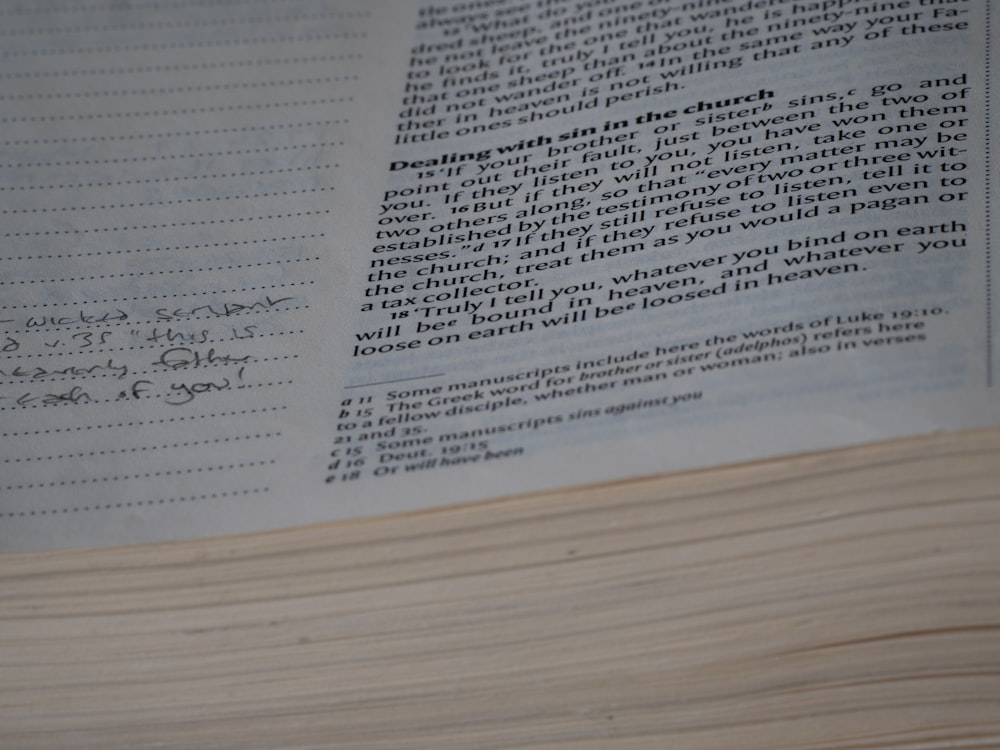 wicked servant
v.35 "this is
heavenly Father
each of you!
always see the
12 'What do you
dred sheep, and one of
he not leave the ninety-nine
to look for the one that wanders
he finds it, truly I tell you, he is happ
that one sheep than about the ninety-nine that
did not wander off. 14 In the same way your Fa-
ther in heaven is not willing that any of these
little ones should perish.
Dealing with sin in the church
15 'If your brother or sister b sins, c go and
point out their fault, just between the two of
you. If they listen to you, you have won them
over. 16 But if they will not listen, take one or
two others along, so that "every matter may be
established by the testimony of two or three wit-
nesses." d 17 If they still refuse to listen, tell it to
the church; and if they refuse to listen even to
the church, treat them as you would a pagan or
a tax collector.
18 'Truly I tell you, whatever you bind on earth
will be e bound in heaven, and whatever you
loose on earth will be e loosed in heaven.
a 11 Some manuscripts include here the words of Luke 19:10.
b 15 The Greek word for brother or sister (adelphos) refers here
to a fellow disciple, whether man or woman; also in verses
21 and 35.
c 15 Some manuscripts sins against you
d 16 Deut. 19:15
e 18 Or will have been